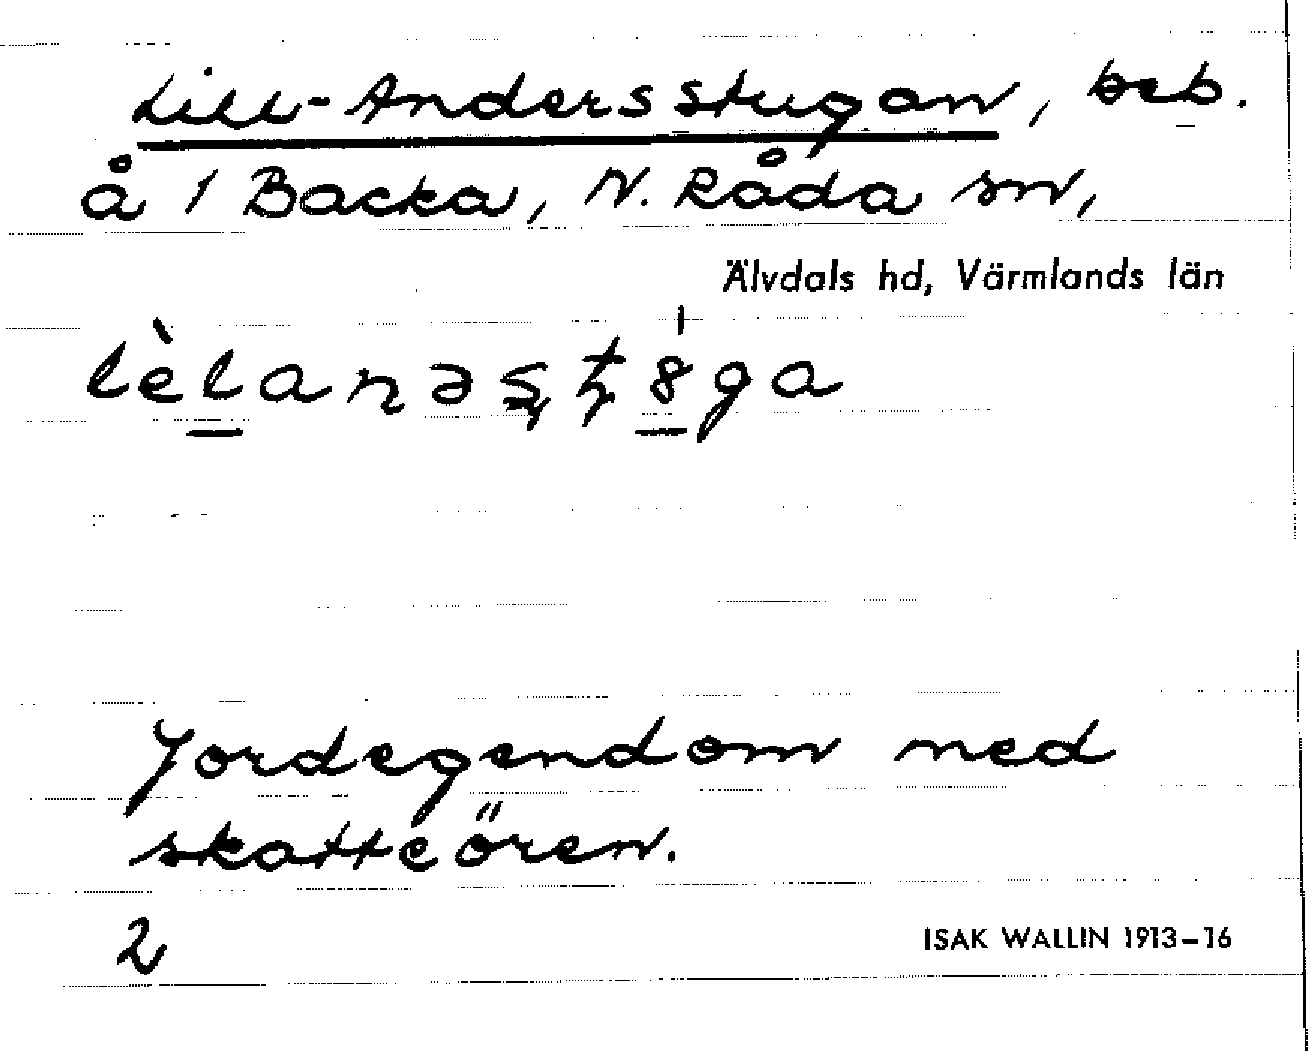 Lill-Andersstugan, beb.
å 1 Backa, N. Råda sn,
Älvdals hd, Värmlands län
Jordegendom med
skatteören.
2
ISAK WALLIN 1913–16